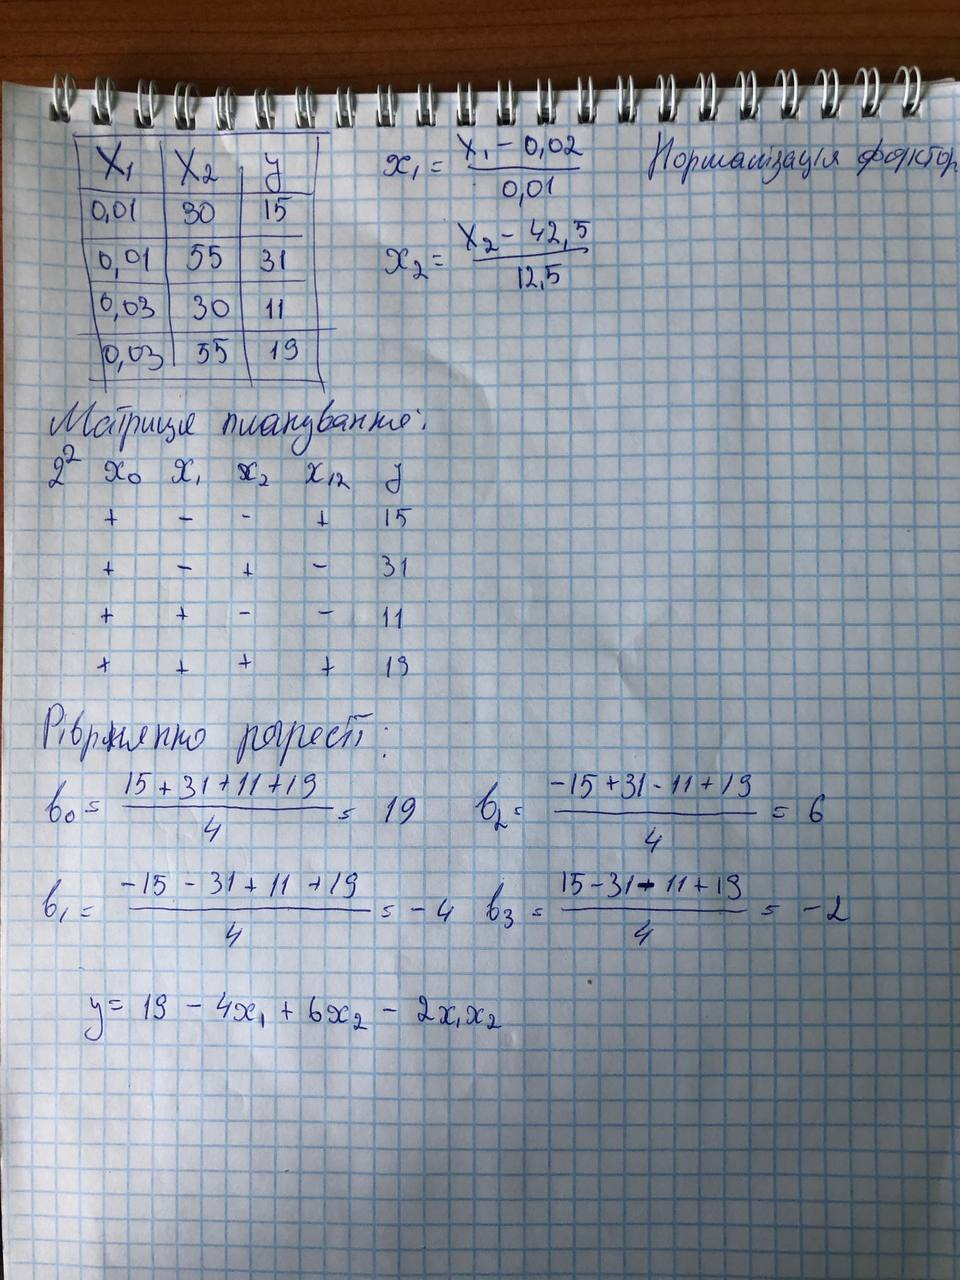 X₁ X₂ y
0,01 30 15
0,01 55 31
0,03 30 11
0,03 55 19
x₁ = (X₁ - 0,02) / 0,01
Нормалізація фактор
x₂ = (X₂ - 42,5) / 12,5
Матриця планування:
2² x₀ x₁ x₂ x₁₂ y
+ - - + 15
+ - + - 31
+ + - - 11
+ + + + 19
:
b₀ = (15 + 31 + 11 + 19) / 4 = 19
b₂ = (-15 + 31 - 11 + 19) / 4 = 6
b₁ = (-15 - 31 + 11 + 19) / 4 = -4
b₃ = (15 - 31 - 11 + 19) / 4 = -2
y = 19 - 4x₁ + 6x₂ - 2x₁x₂